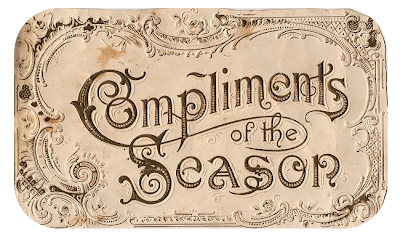 Compliments
of the
Season